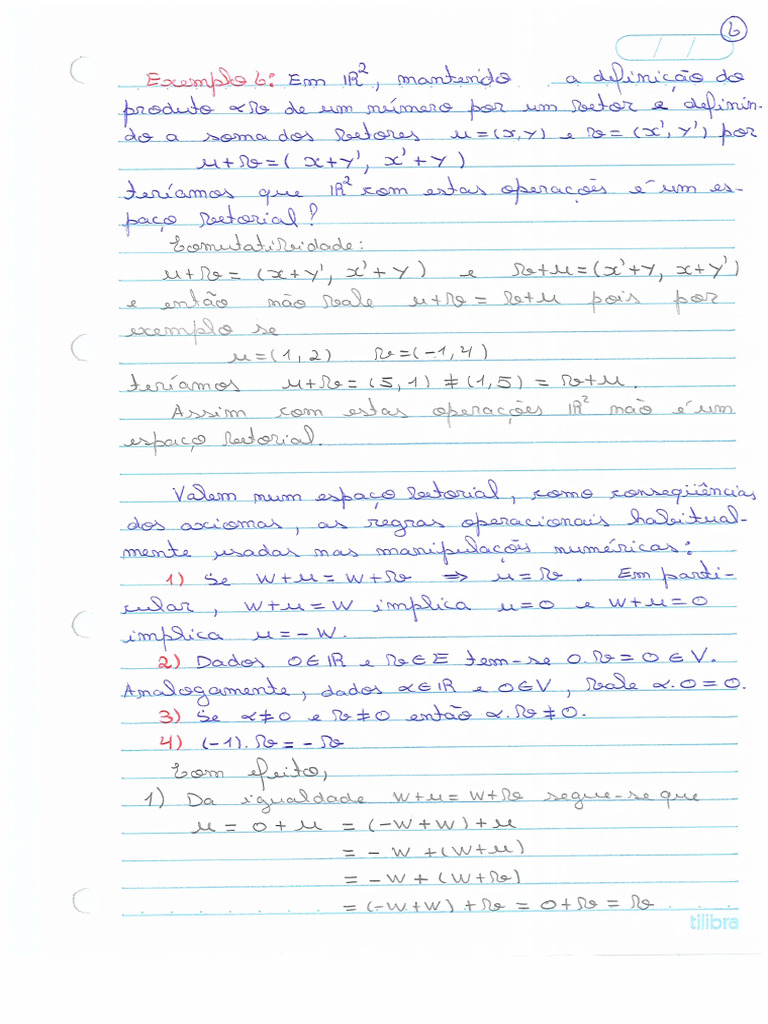 6
Exemplo 6: Em ℝ², mantendo a definição do
produto αv de um número por um vetor e definin-
do a soma dos vetores u=(x,y) e v=(x', y') por
u+v=( x+y', x'+y)
teríamos que ℝ² com estas operações é um es-
paço vetorial?
Comutatividade:
u+v = (x+y', x'+y) e v+u=(x'+y, x+y')
e então não vale u+v = v+u pois por
exemplo se
u=(1,2) v=(-1,4)
teríamos u+v=(5,1) ≠ (1,5) = v+u.
Assim com estas operações ℝ² não é um
espaço vetorial.
Valem num espaço vetorial, como conseqüências
dos axiomas, as regras operacionais habitual-
mente usadas nas manipulações numéricas:
1) Se w+u = w+v ⇒ u=v. Em parti-
cular, w+u=w implica u=0 e w+u=0
implica u=-w.
2) Dados 0∈ℝ e v∈E tem-se 0.v=0∈V.
Analogamente, dados α∈ℝ e 0∈V, vale α.0=0.
3) Se α≠0 e v≠0 então α.v≠0.
4) (-1).v=-v
Com efeito,
1) Da igualdade w+u=w+v segue-se que
u = 0+u = (-w+w)+u
= -w +(w+u)
= -w + (w+v)
= (-w+w) + v = 0+v = v
tilibra